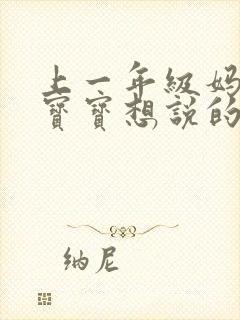 上一年級妈
寳寳想說的
纳尼